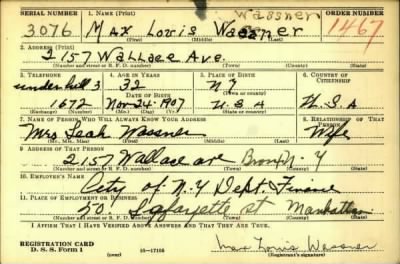 SERIAL NUMBER 1. NAME (Print) Wassner ORDER NUMBER
3076 Max Louis Wassner 1467
(First) (Middle) (Last)
2. ADDRESS (Print)
2157 Wallace Ave.
(Number and street or R. F. D. number) (Town) (County) (State)
3. TELEPHONE 4. AGE IN YEARS 5. PLACE OF BIRTH 6. COUNTRY OF CITIZENSHIP
Underhill 3 32 N Y
DATE OF BIRTH (Town or county)
1672 Nov 24 1907 U.S.A U.S.A
(Exchange) (Number) (Mo.) (Day) (Yr.) (State or country)
7. NAME OF PERSON WHO WILL ALWAYS KNOW YOUR ADDRESS 8. RELATIONSHIP OF THAT PERSON
Mrs Leah Wassner Wife
(Mr., Mrs., Miss) (First) (Middle) (Last)
9. ADDRESS OF THAT PERSON
2157 Wallace ave Bronx N-Y
(Number and street or R. F. D. number) (Town) (County) (State)
10. EMPLOYER'S NAME
City of N-Y Dept. Finance
11. PLACE OF EMPLOYMENT OR BUSINESS
50 Lafayette st Manhattan
(Number and street or R. F. D. number) (Town) (County) (State)
I AFFIRM THAT I HAVE VERIFIED ABOVE ANSWERS AND THAT THEY ARE TRUE.
REGISTRATION CARD
D. S. S. Form 1 (over) 16—17105 Max Louis Wassner
(Registrant's signature)